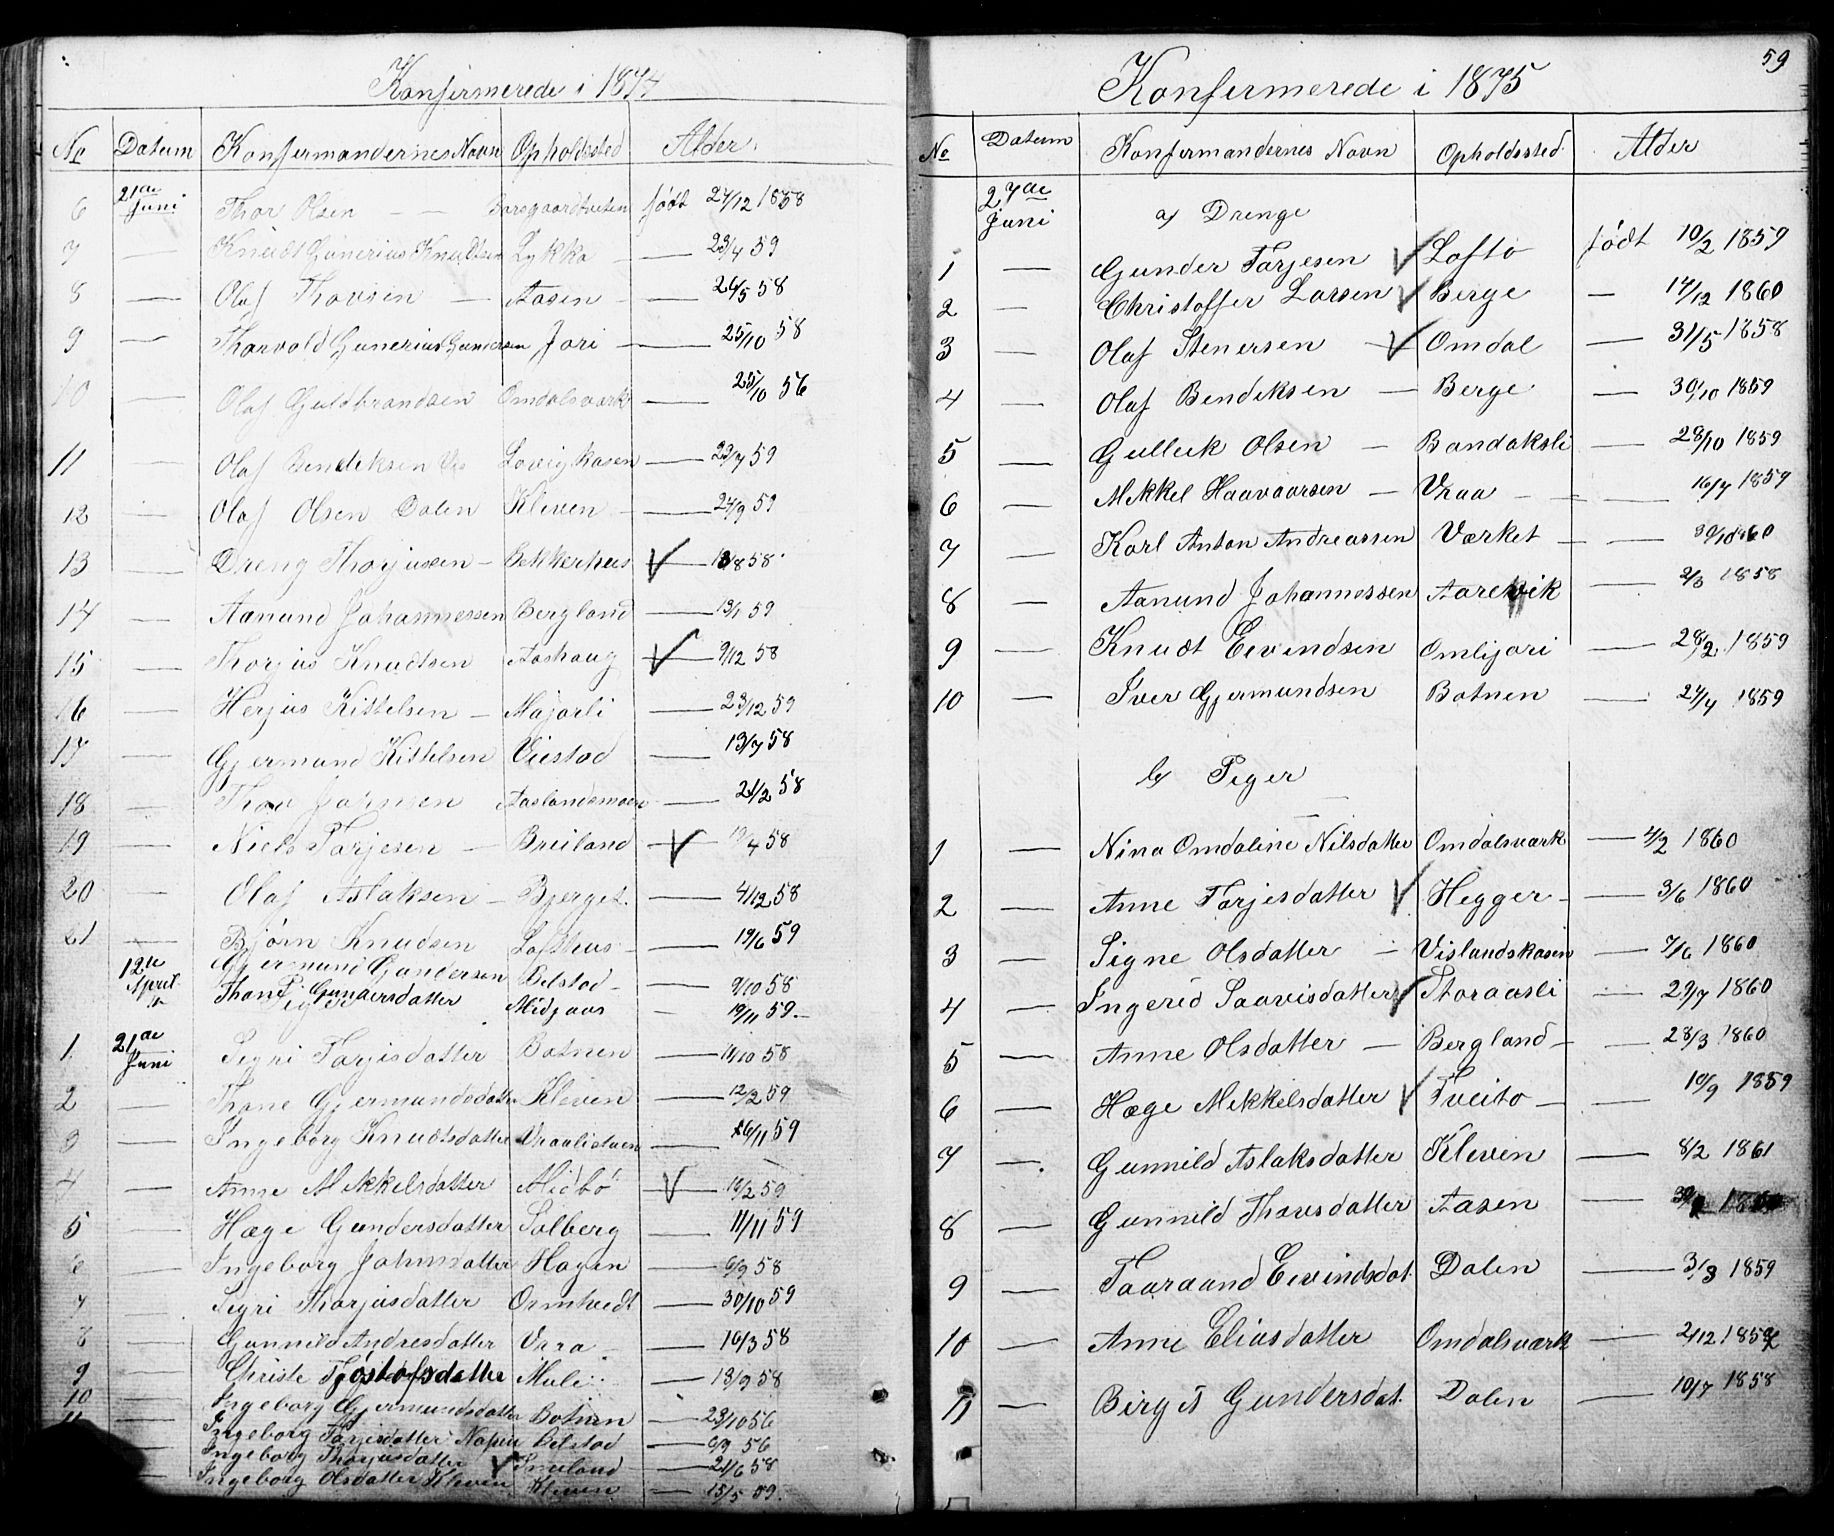 Konfirmerede i 1874
No Datum Konfirmandernes Navn Opholdssted Alder.
6 21de Juni Thor Olsen — — født 27/12 1858
7 — Knudt Gunerius Knudtsen Lykka — 23/4 59
8 — Olaf Thovsen — Aasen — 26/5 58
9 — Thorvold Gunerius Gundersen Jori — 25/10 58
10 — Olaf Guldbrandsen Omdalsværk — 25/10 56
11 — Olaf Bendiksen Lovigkasen — 23/7 59
12 — Olaf Olsen Dalen Kleven — 27/9 59
13 — Dreng Thorjussen — Bekkerhus — 13/8 58
14 — Aanund Johannessen Bergland — 13/1 59
15 — Thorjus Knudtsen Aashaug — 9/12 58
16 — Herjus Kittelsen — Najarli — 23/12 59
17 — Gjermund Kittelsen Viestad — 13/7 58
18 — Thov Johnsen Aaslandsmoen — 21/2 58
19 — Niels Tarjesen — Breiland — 19/4 58
20 — Olaf Aslaksen — Bjerget. — 4/12 58
21 — Bjørn Knudsen Lofthus — 19/6 59
12te April Gjermund Gundersen Belstad — 9/10 58
Thone Gundersdatter Midgaas — 19/11 59 —
Piger
1. 21de Juni Sigri Tarjisdatter Botnen — 11/10 58
2 — Thone Gjermundsdatter Kleven — 12/2 59
3 — Ingeborg Knudtsdatter Vraalistuen — 26/11 59
4 — Anne Mikkelsdatter Midbö — 10/2 59
5 — Hæge Gundersdatter Solberg — 11/11 59
6 — Ingeborg Johnsdatter Hagen — 6/9 58
7 — Sigri Thorjusdatter Ormtvedt — 30/10 59
8 — Gunnild Andresdatter Vraa — 16/3 58
9 — Christe Tjostofsdatter Muli — 13/9 58
10 — Ingeborg Gjermundsdatter Botnen — 23/10 56
11 Ingeborg Tarjisdatter Napen Belstad — 6/9 56
Ingeborg Thorjusdatter — 21/6 58
Ingeborg Olsdatter Kleven Kleven — 15/5 59.
59
Konfirmerede i 1875
No Datum Konfirmandernes Navn Opholdssted Alder
27de Juni a) Drenge
1 — Gunder Tarjesen Lofto født 10/2 1859
2 — Christoffer Larsen Berge — 17/12 1860
3 — Olaf Stenersen — Omdal — 31/5 1858
4 — Olaf Bendiksen — Berge — 30/10 1859
5 — Gulleik Olsen — Bandaksli — 28/10 1859
6 — Mikkel Haavaarsen — Vraa — — 16/7 1859
7 — Karl Anton Andreassen Værket — — 30/10 60
8 — Aanund Johannessen Aarevik — 2/3 1858
9 — Knudt Eivindsen Omlijori — 28/2 1859
10 — Iver Gjermundsen Botnen — 27/4 1859
b) Piger
1 — Nina Omdaline Nilsdatter Omdalsværk — 4/2 1860
2 — Anne Tarjesdatter Hegger — 3/6 1860
3 — Signe Olsdatter — Vislandskasin — 7/6 1860
4 — Ingerid Saavisdatter Storaasli — 29/7 1860
5 — Anne Olsdatter — Bergland — — 28/3 1860
6 — Hæge Mikkelsdatter Tveito — — 10/9 1859
7 — Gunnild Aslaksdatter Kleven — 8/2 1861
8 — Gunnild Thovsdatter Aasen —
9 — Taaraand Eivindsdat. Dalen — 3/3 1859
10 — Anne Eliasdatter Omdalsværk —
11 — Birgit Gundersdat. Dalen — 10/7 1858